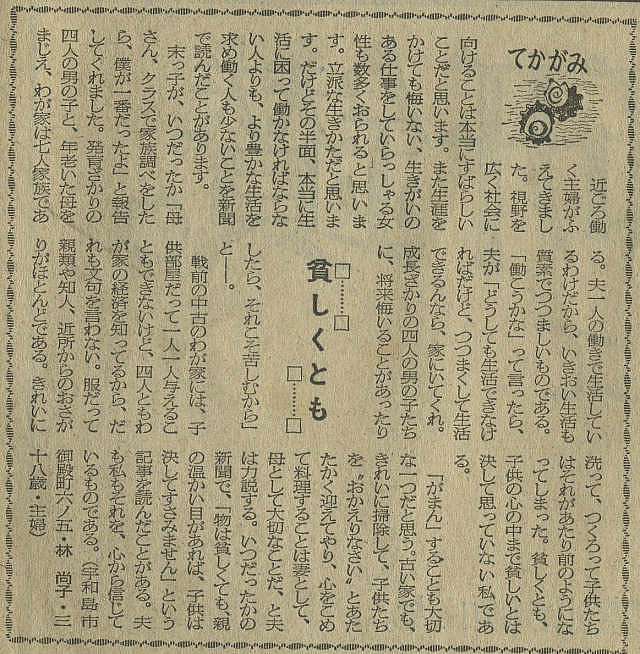 てかがみ
近ごろ働
く主婦がふ
えてきまし
た。視野を
広く社会に
向けることは本当にすばらしい
ことだと思います。また生涯を
かけても悔いない、生きがいの
ある仕事をしていらっしゃる女
性も数多くおられると思いま
す。立派な生きかただと思いま
す。だけどその半面、本当に生
活に困って働かなければならな
い人よりも、より豊かな生活を
求め働く人も少ないことを新聞
で読んだことがあります。
末っ子が、いつだったか「母
さん、クラスで家族調べをした
ら、僕が一番だったよ」と報告
してくれました。発育ざかりの
四人の男の子と、年老いた母を
まじえ、わが家は七人家族であ
る。夫一人の働きで生活してい
るわけだから、いきおい生活も
質素でつつましいものである。
「働こうかな」って言ったら、
夫が「どうしても生活できなけ
ればだけど、つつまくして生活
できるんなら、家にいてくれ。
成長ざかりの四人の男の子たち
に、将来悔いることがあったり
貧しくとも
したら、それこそ苦しむから」
と―。
戦前の中古のわが家には、子
供部屋だって一人一人与えるこ
ともできないけど、四人ともわ
が家の経済を知ってるから、だ
れも文句を言わない。服だって
親類や知人、近所からのおさが
りがほとんどである。きれいに
洗って、つくろって子供たち
はそれがあたり前のようにな
ってしまった。貧しくとも、
子供の心の中まで貧しいとは
決して思っていない私であ
る。
「がまん」することも大切
な一つだと思う。古い家でも、
きれいに掃除して、子供たち
を〝おかえりなさい〟とあた
たかく迎えてやり、心をこめ
て料理することは妻として、
母として大切なことだ、と夫
は力説する。いつだったかの
新聞で、「物は貧しくても、親
の温かい目があれば、子供は
決してすさみません」という
記事を読んだことがある。夫
も私もそれを、心から信じて
いるものである。（宇和島市
御殿町六ノ五・林　尚子・三
十八歳・主婦）